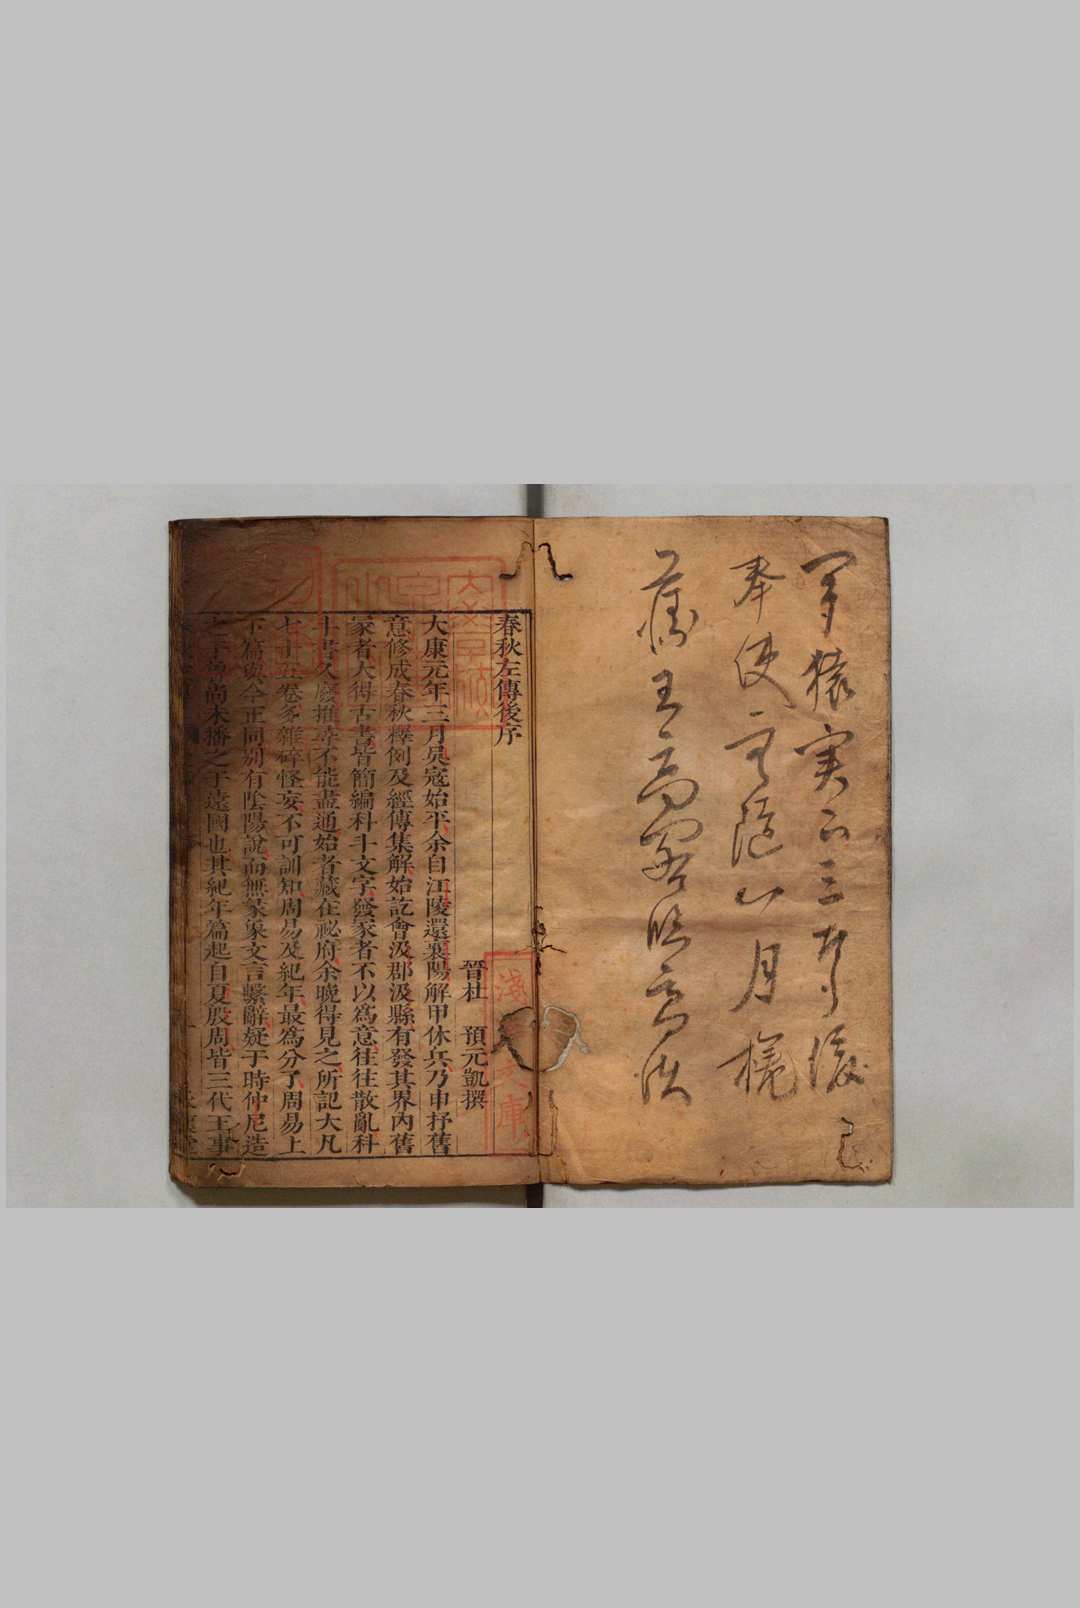 聽猿実下三聲淚
奉使虛隨八月槎
滕王高閣臨
春秋左傳後序
晉杜　預元凱撰
大康元年三月吳寇始平余自江陵還襄陽解甲休兵乃申抒舊
意修成春秋釋例及經傳集解始訖會汲郡汲縣有發其界內舊
冢者大得古書皆簡編科斗文字發冢者不以爲意往往散亂科
斗書久廢推尋不能盡通始者藏在祕府余晚得見之所記大凡
七十五卷多雜碎怪妄不可訓知周易及紀年最爲分了周易上
下篇與今正同別有陰陽說而無彖象文言繫辭疑于時仲尼造
之于魯尚未播之于遠國也其紀年篇起自夏殷周皆三代王事
淺草文庫